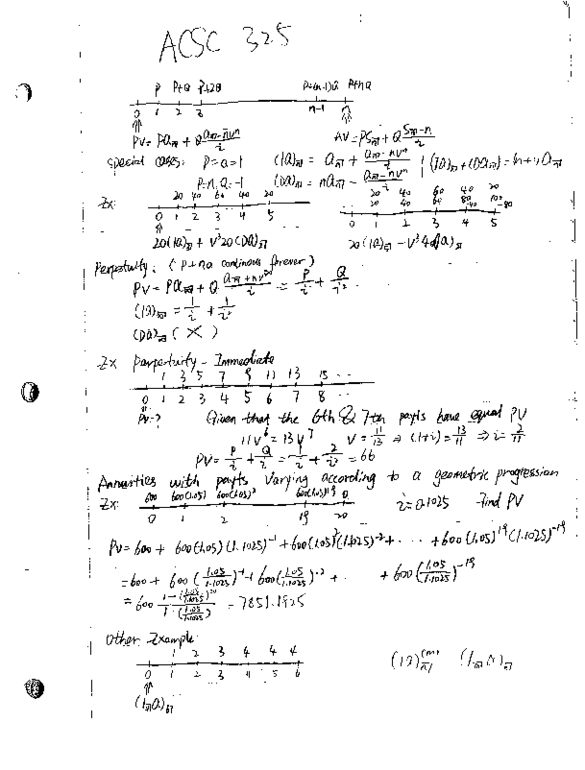 ACSC 325
P P+Q P+2Q P+(n-1)Q P+nQ
0 1 2 3 n-1 n
PV = Pa_n̅| + Q (a_n̅| - nvⁿ)/i AV = PS_n̅| + Q (S_n̅| - n)/i
special cases: P=Q=1 (Ia)_n̅| = a_n̅| + (a_n̅| - nvⁿ)/i | (Ia)_n̅| + (Da)_n̅| = (n+1)a_n̅|
P=n, Q=-1 (Da)_n̅| = na_n̅| - (a_n̅| - nvⁿ)/i
Ex: 20 40 60 40 20
0 1 2 3 4 5
20 40 60 40 20
20 40 60 80 100
0 1 2 3 4 5
20(Ia)
Perpetuity: (P+nQ continous forever)
PV = Pa_∞̅| + Q = P/i + Q/i²
(Ia)_∞̅| = 1/i + 1/i²
(Da)_∞̅| (X)
Ex Perpetuity - Immediate
1 3 5 7 9 11 13 15 ...
0 1 2 3 4 5 6 7 8 ...
PV=? Given that the 6th & 7th payts have equal PV
11v⁶ = 13v⁷ v = 11/13 ⇒ (1+i) = 13/11 ⇒ i = 2/11
PV = P/i + Q/i² = 1/i + 2/i² = 66
Annuities with payts varying according to a geometric progression
Ex: 600 600(1.05) 600(1.05)² 600(1.05)¹⁹ 0
0 1 2 19 20 i = 0.1025 Find PV
PV = 600 + 600(1.05)(1.1025)⁻¹ + 600(1.05)²(1.1025)⁻² + ... + 600(1.05)¹⁹(1.1025)⁻¹⁹
= 7851.1925
Other Example:
1 2 3 4 4 4
0 1 2 3 4 5 6